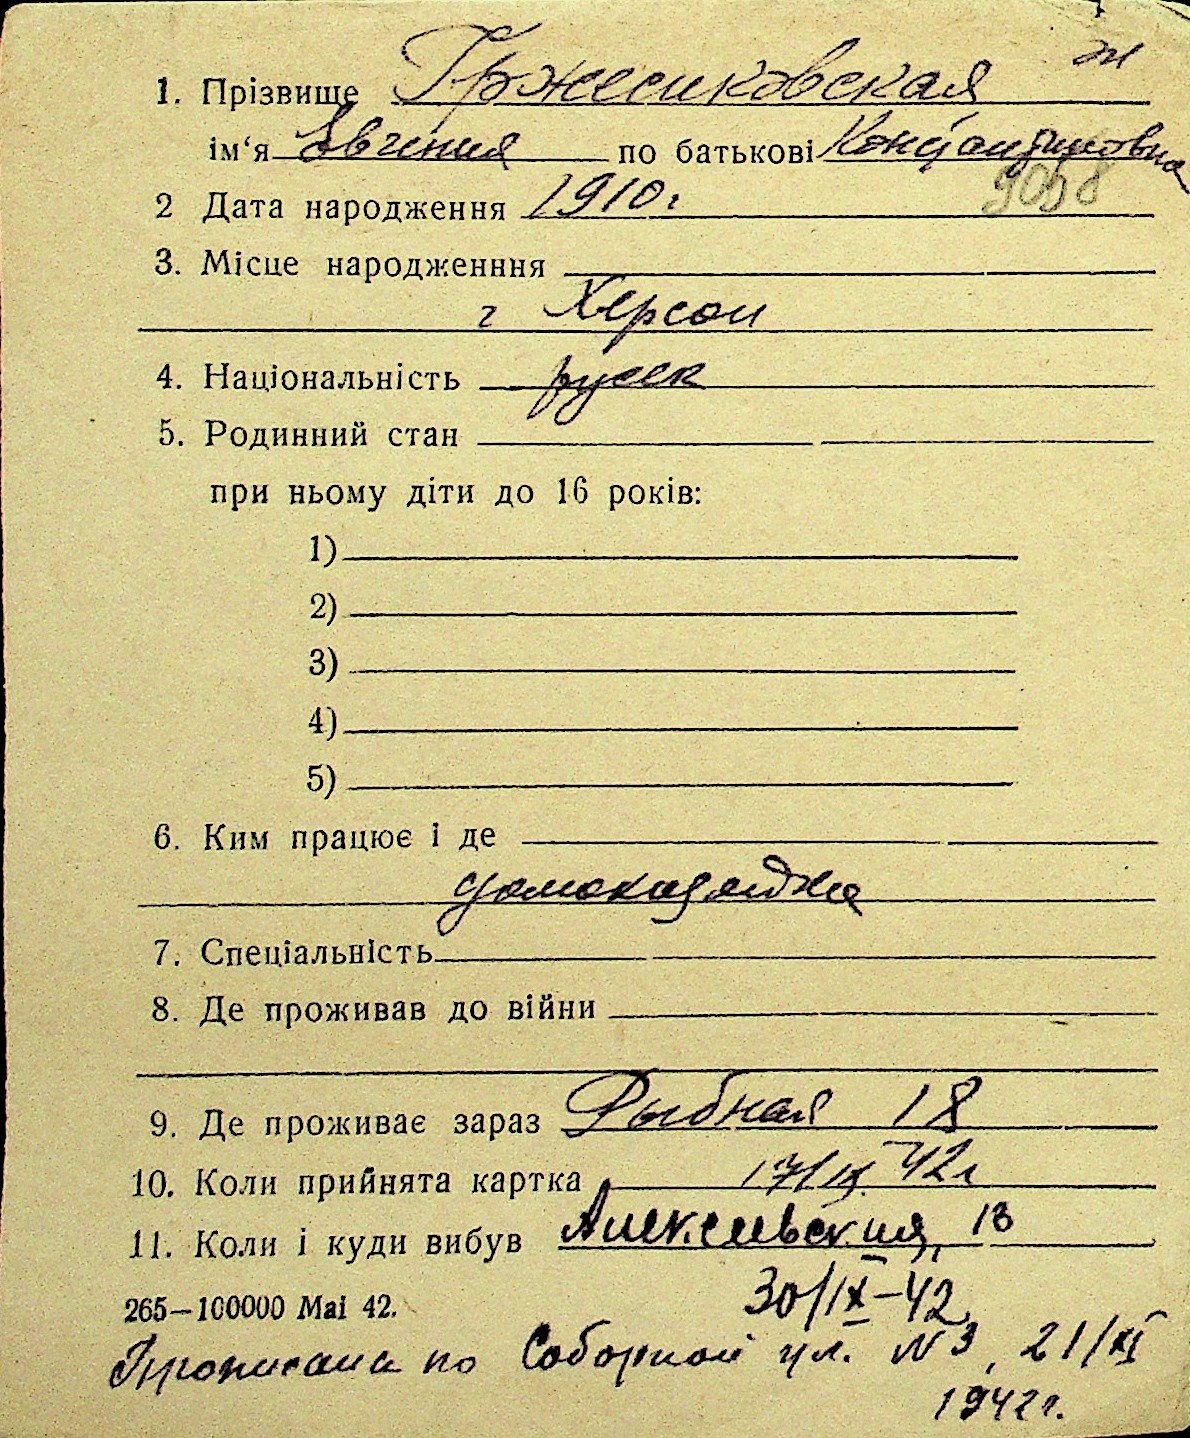 ж
1. Прізвище Гржесиковская
ім‘я Евгения по батькові Константиновна
9058
2 Дата народження 1910 г
3. Місце народженння
г Херсон
4. Національність русск
5. Родинний стан
при ньому діти до 16 років:
1)
2)
3)
4)
5)
6. Ким працює і де
домохазяйка
7. Спеціальність
8. Де проживав до війни
9. Де проживає зараз Рыбная 18
10. Коли прийнята картка 17/IX. 42 г
11. Коли і куди вибув Алексеевская, 13
30/IX-42
265—100000 Маі 42.
Прописана по Соборной ул. N 3, 21/XI
1942 г.